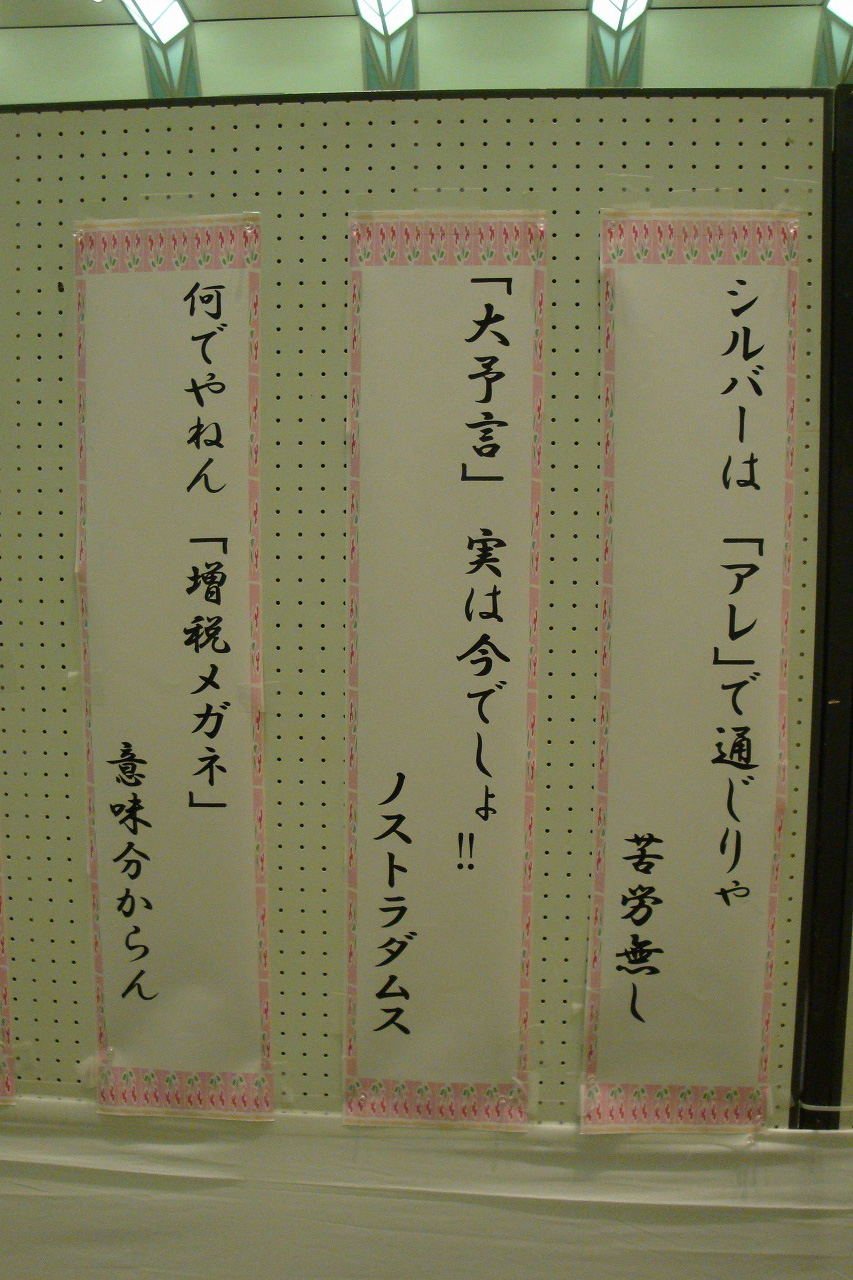 シルバーは「アレ」で通じりゃ
苦労無し
「大予言」　実は今でしょ!!
ノストラダムス
何でやねん「増税メガネ」
意味分からん